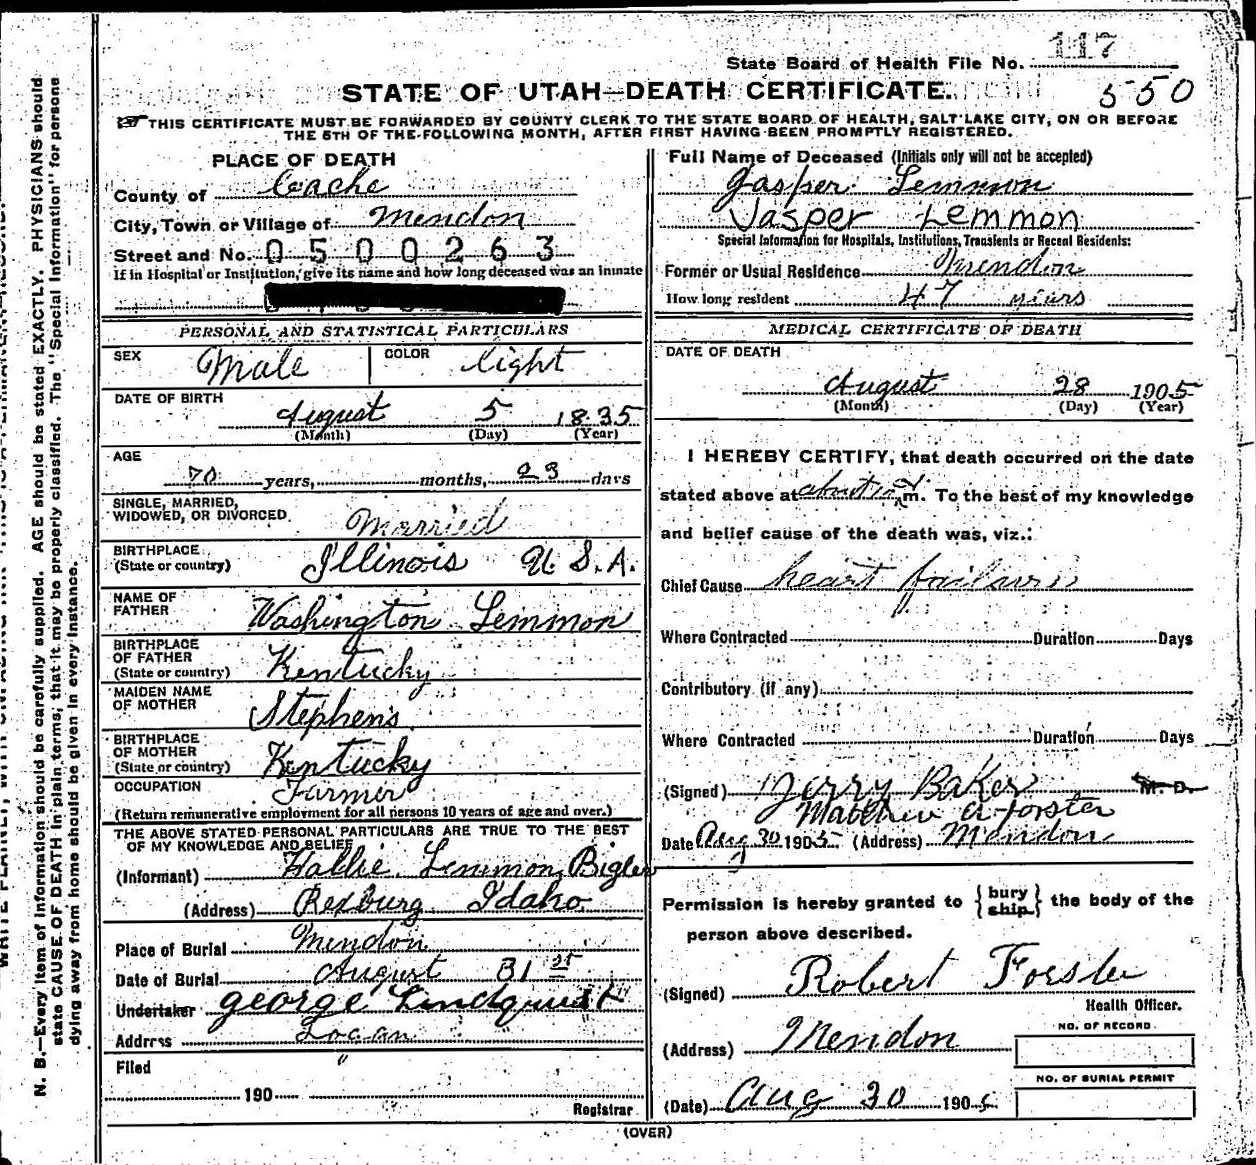 State Board of Health File No. 117
STATE OF UTAH—DEATH CERTIFICATE.
550
THIS CERTIFICATE MUST BE FORWARDED BY COUNTY CLERK TO THE STATE BOARD OF HEALTH, SALT LAKE CITY, ON OR BEFORE
THE 5TH OF THE FOLLOWING MONTH, AFTER FIRST HAVING BEEN PROMPTLY REGISTERED.
PLACE OF DEATH
County of Cache
City, Town or Village of Mendon
Street and No. 0500263
If in Hospital or Institution, give its name and how long deceased was an inmate
PERSONAL AND STATISTICAL PARTICULARS
SEX Male COLOR light
DATE OF BIRTH
August 5 1835
(Month) (Day) (Year)
AGE
70 years, months, 23 days
SINGLE, MARRIED,
WIDOWED, OR DIVORCED Married
BIRTHPLACE
(State or country) Illinois U.S.A.
NAME OF
FATHER Washington Lemmon
BIRTHPLACE
OF FATHER
(State or country) Kentucky
MAIDEN NAME
OF MOTHER Stephens
BIRTHPLACE
OF MOTHER
(State or country) Kentucky
OCCUPATION Farmer
(Return remunerative employment for all persons 10 years of age and over.)
THE ABOVE STATED PERSONAL PARTICULARS ARE TRUE TO THE BEST
OF MY KNOWLEDGE AND BELIEF
(Informant) Hallie Lemmon Bigler
(Address) Rexburg Idaho
Place of Burial Mendon
Date of Burial August 31st
Undertaker George Lindquist
Address Logan
Filed "
190
Registrar
Full Name of Deceased (Initials only will not be accepted)
Jasper Lemmon
Jasper Lemmon
Special Information for Hospitals, Institutions, Transients or Recent Residents:
Former or Usual Residence Mendon
How long resident 47 years
MEDICAL CERTIFICATE OF DEATH
DATE OF DEATH
August 28 1905
(Month) (Day) (Year)
I HEREBY CERTIFY, that death occurred on the date
stated above at about m. To the best of my knowledge
and belief cause of the death was, viz.:
Chief Cause heart failure
Where Contracted Duration Days
Contributory (if any)
Where Contracted Duration Days
(Signed) Jerry Baker M. D.
Matthew A Forster
Date Aug 30 1905 (Address) Mendon
Permission is hereby granted to {bury ship} the body of the
person above described.
(Signed) Robert Forster
Health Officer.
(Address) Mendon
NO. OF RECORD
NO. OF BURIAL PERMIT
(Date) Aug 30 1905
(OVER)
N. B.—Every item of information should be carefully supplied. AGE should be stated EXACTLY. PHYSICIANS should
state CAUSE OF DEATH in plain terms, that it may be properly classified. The "Special Information" for persons
dying away from home should be given in every instance.